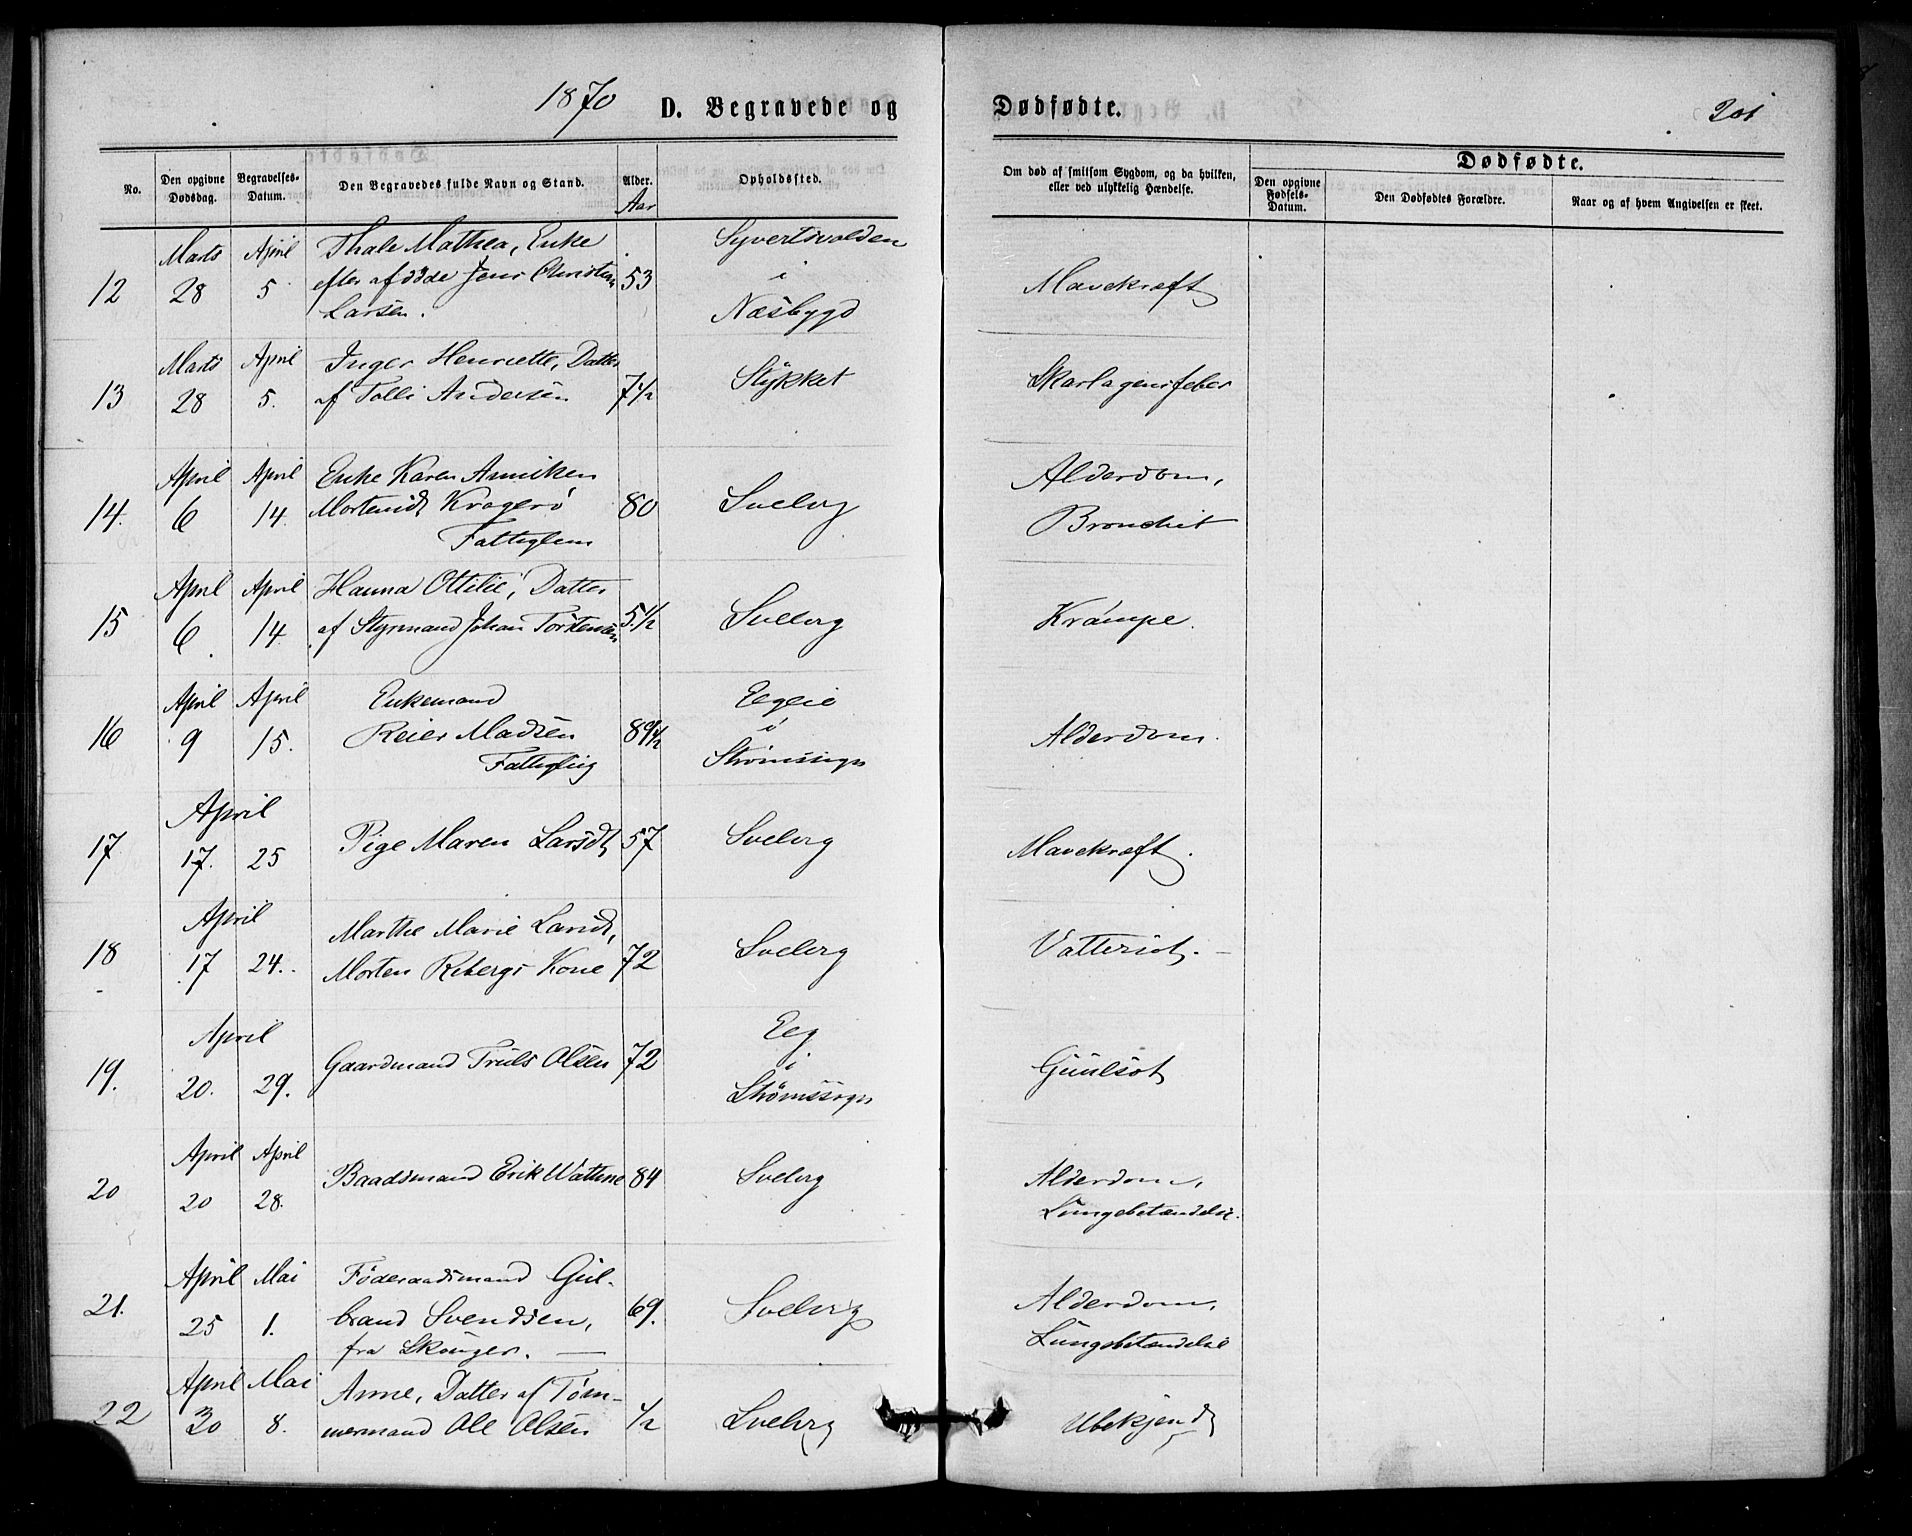 1870 D. Begravede og Dødfødte. 201
No. Den opgivne Dødsdag. Begravelses-Datum. Den Begravedes fulde Navn og Stand. Alder. Aar Opholdssted. Om død af smitsom Sygdom, og da hvilken, eller ved ulykkelig Hændelse. Dødfødte.
Den opgivne Fødsels-Datum. Den Dødfødtes Forældre. Naar og af hvem Angivelsen er skeet.
Marts April Thale Mathea, Enke Syvertsvolden
12 28 5. efter afdøde Jens Christian 53 i Mavekræft
Larsen. Næsbygd
Marts April Inger Henriette, Datter
13 28 5. af Tolle Andersen 7 1/2 Stykket Skarlagensfeber
April April Enke Karen Anniken Alderdom,
14. 6 14. Mortensdt Kragerø 80 Svelvig Bronchit
Fattiglem
April April Hanna Ottilie, Datter
15 6. 14. af Styrmand Johan Torstensen 5 1/2 Svelvig Krampe.
April April Enkemand Eeglie
16 9 15. Reier Madsen 89 1/2 i Alderdom.
Fattiglig Strømssogn
April
17 17. 25 Pige Maren Larsdt 57 Svelvig Mavekræft.
April Marthe Marie Larsdt,
18 17 24. Morten Rebergs Kone 72 Svelvig Vattersot.
April Eeg
19. 20. 29. Gaardmand Truls Olsen 72 i Guulsot
Strømssogn
April April
20 20 28. Baadsmand Erik Wattne 84 Svelvig Alderdom,
Lungebetændelse.
April Mai Føderaadsmand Gul-
21. 25 1. brand Svendsen, 69. Svelvig Alderdom,
fra Skouger. Lungebetændelse
April Mai Anne, Datter af Tøm-
22 30 8. mermand Ole Olsen 1/2 Svelvig Ubekjendt